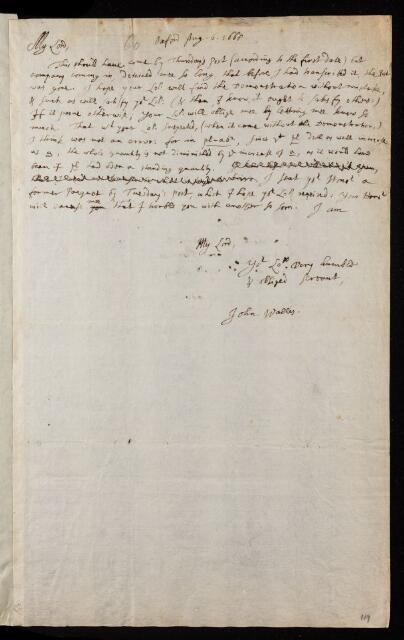 My Lord, 60 Oxford Aug. 6. 1668
This should have come by Thursdays post (according to the first date) but
company coming in, deteined mee so long, that before I had transcribed it the Post
was gone. I hope your Lop. will find the Demonstration without mistake,
& such as will satisfy yr Lop. (& then, I know it ought to satisfy others:)
If it prove otherwise, your Lop. will oblige mee by letting mee know so
much. That wch your Lop. suspected, (when it came without the Demonstration,)
I think was not an error:
as the whole quantity is not diminished by ye increase of as it would have
been if had been a standing quantity
I sent yr Honor a
former Paquet by Tuesdays post, which I hope yr Lop received: Your Honor
will excuse mee that I trouble you with another so soon. I am
My Lord,
Yr Lops. very humble
& obliged servant,
John Wallis.
119